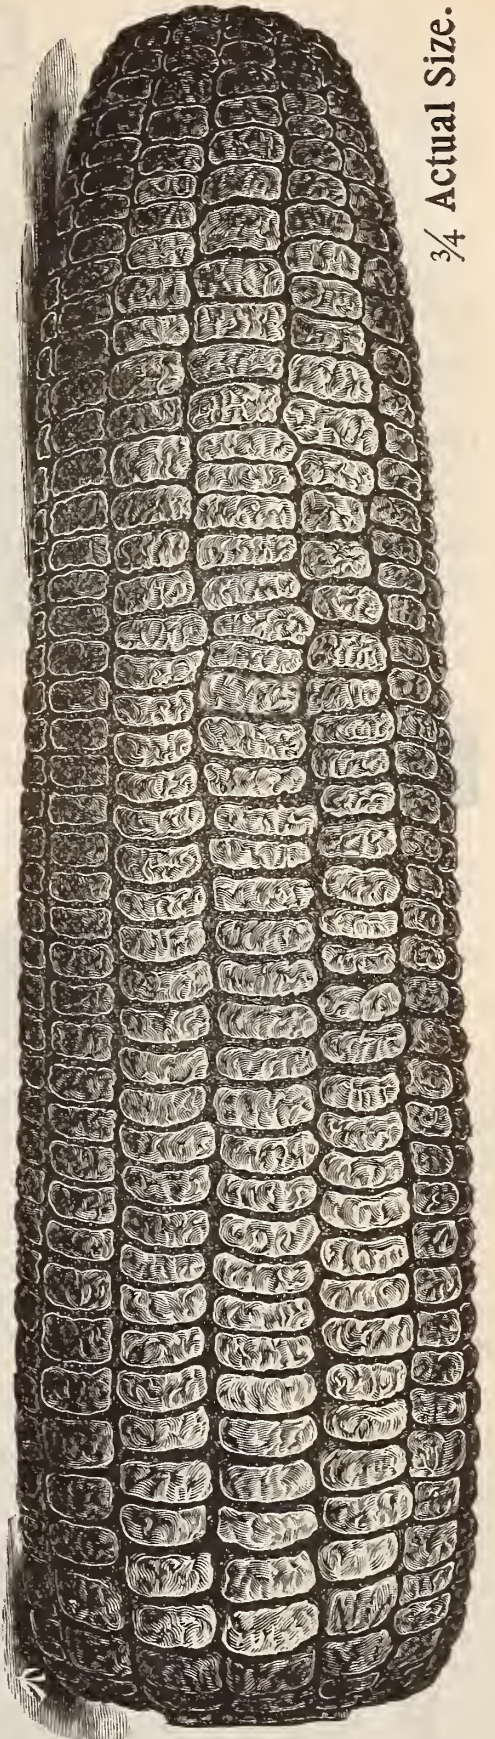 ¾ Actual Size.